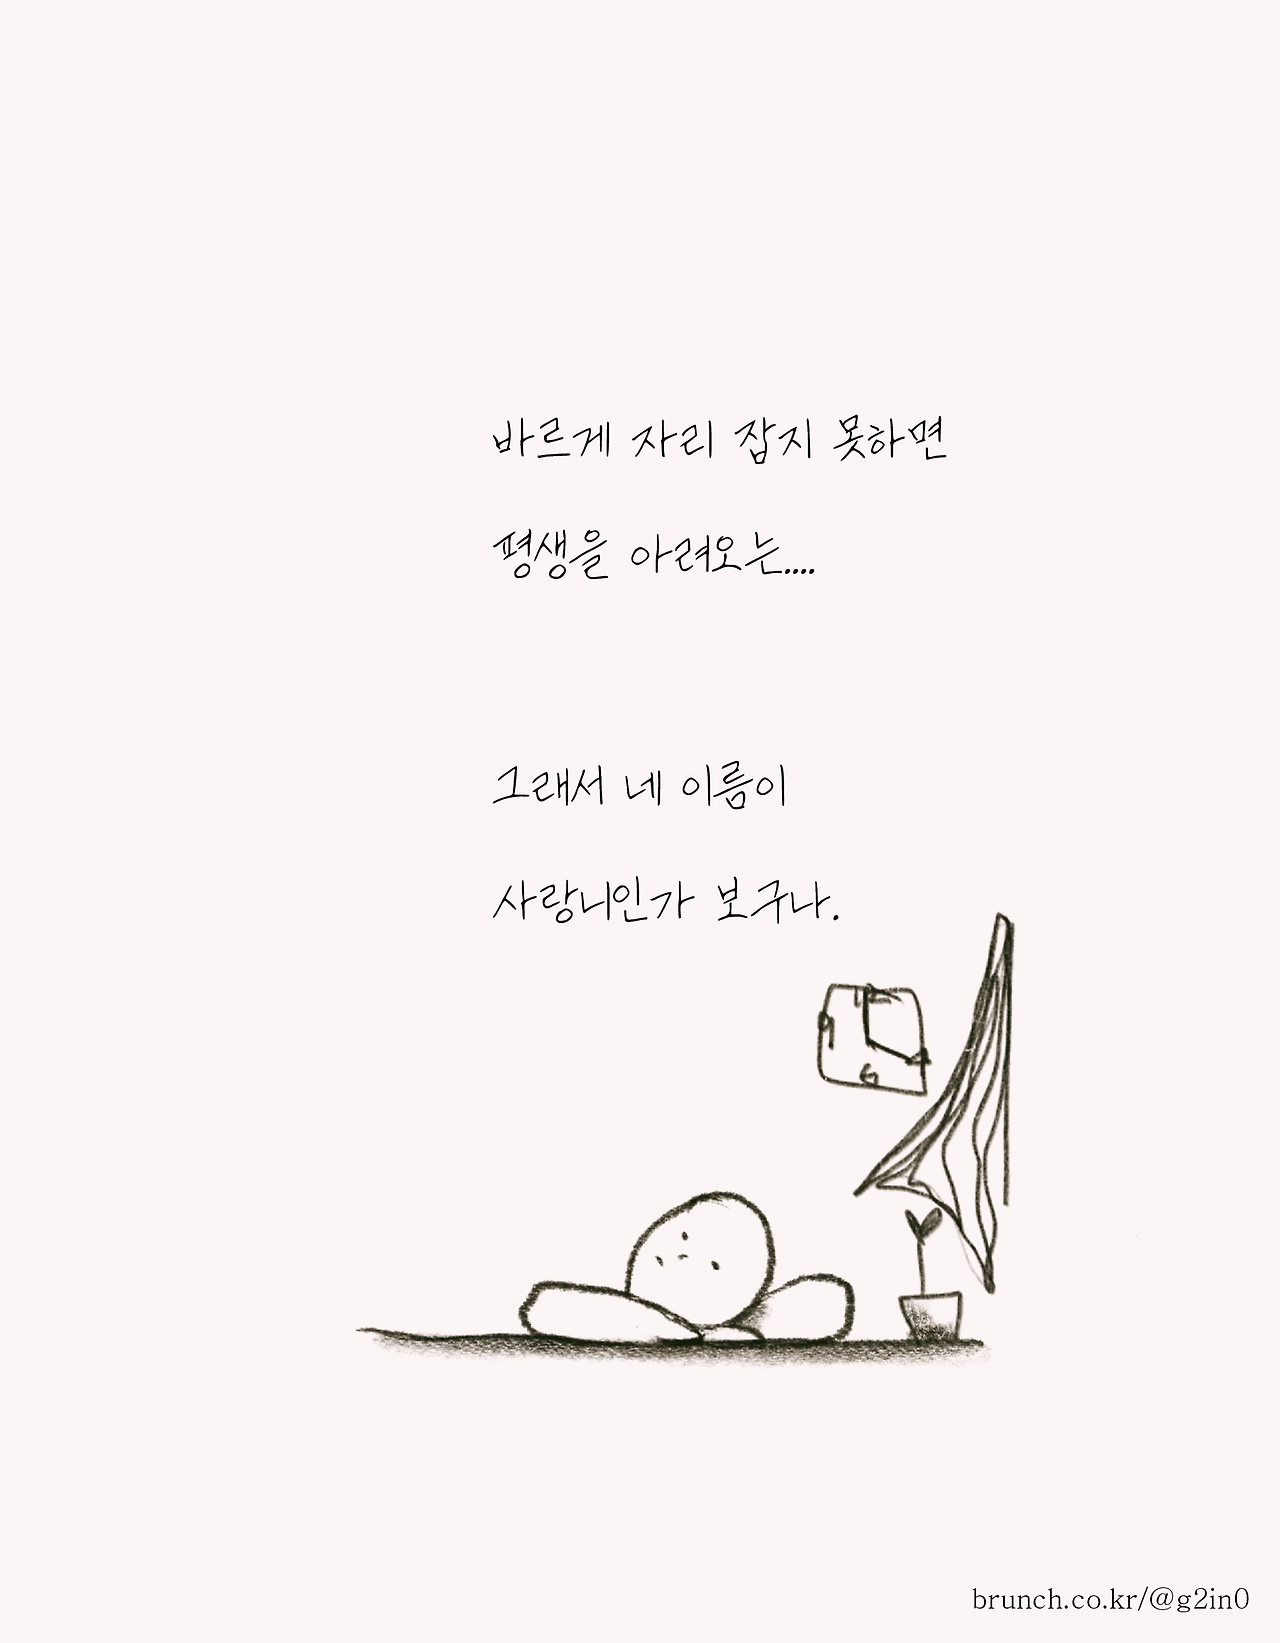 바르게 자리 잡지 못하면
평생을 아려오는....
그래서 네 이름이
사랑니인가 보구나.
12
9
3
6
brunch.co.kr/@g2in0